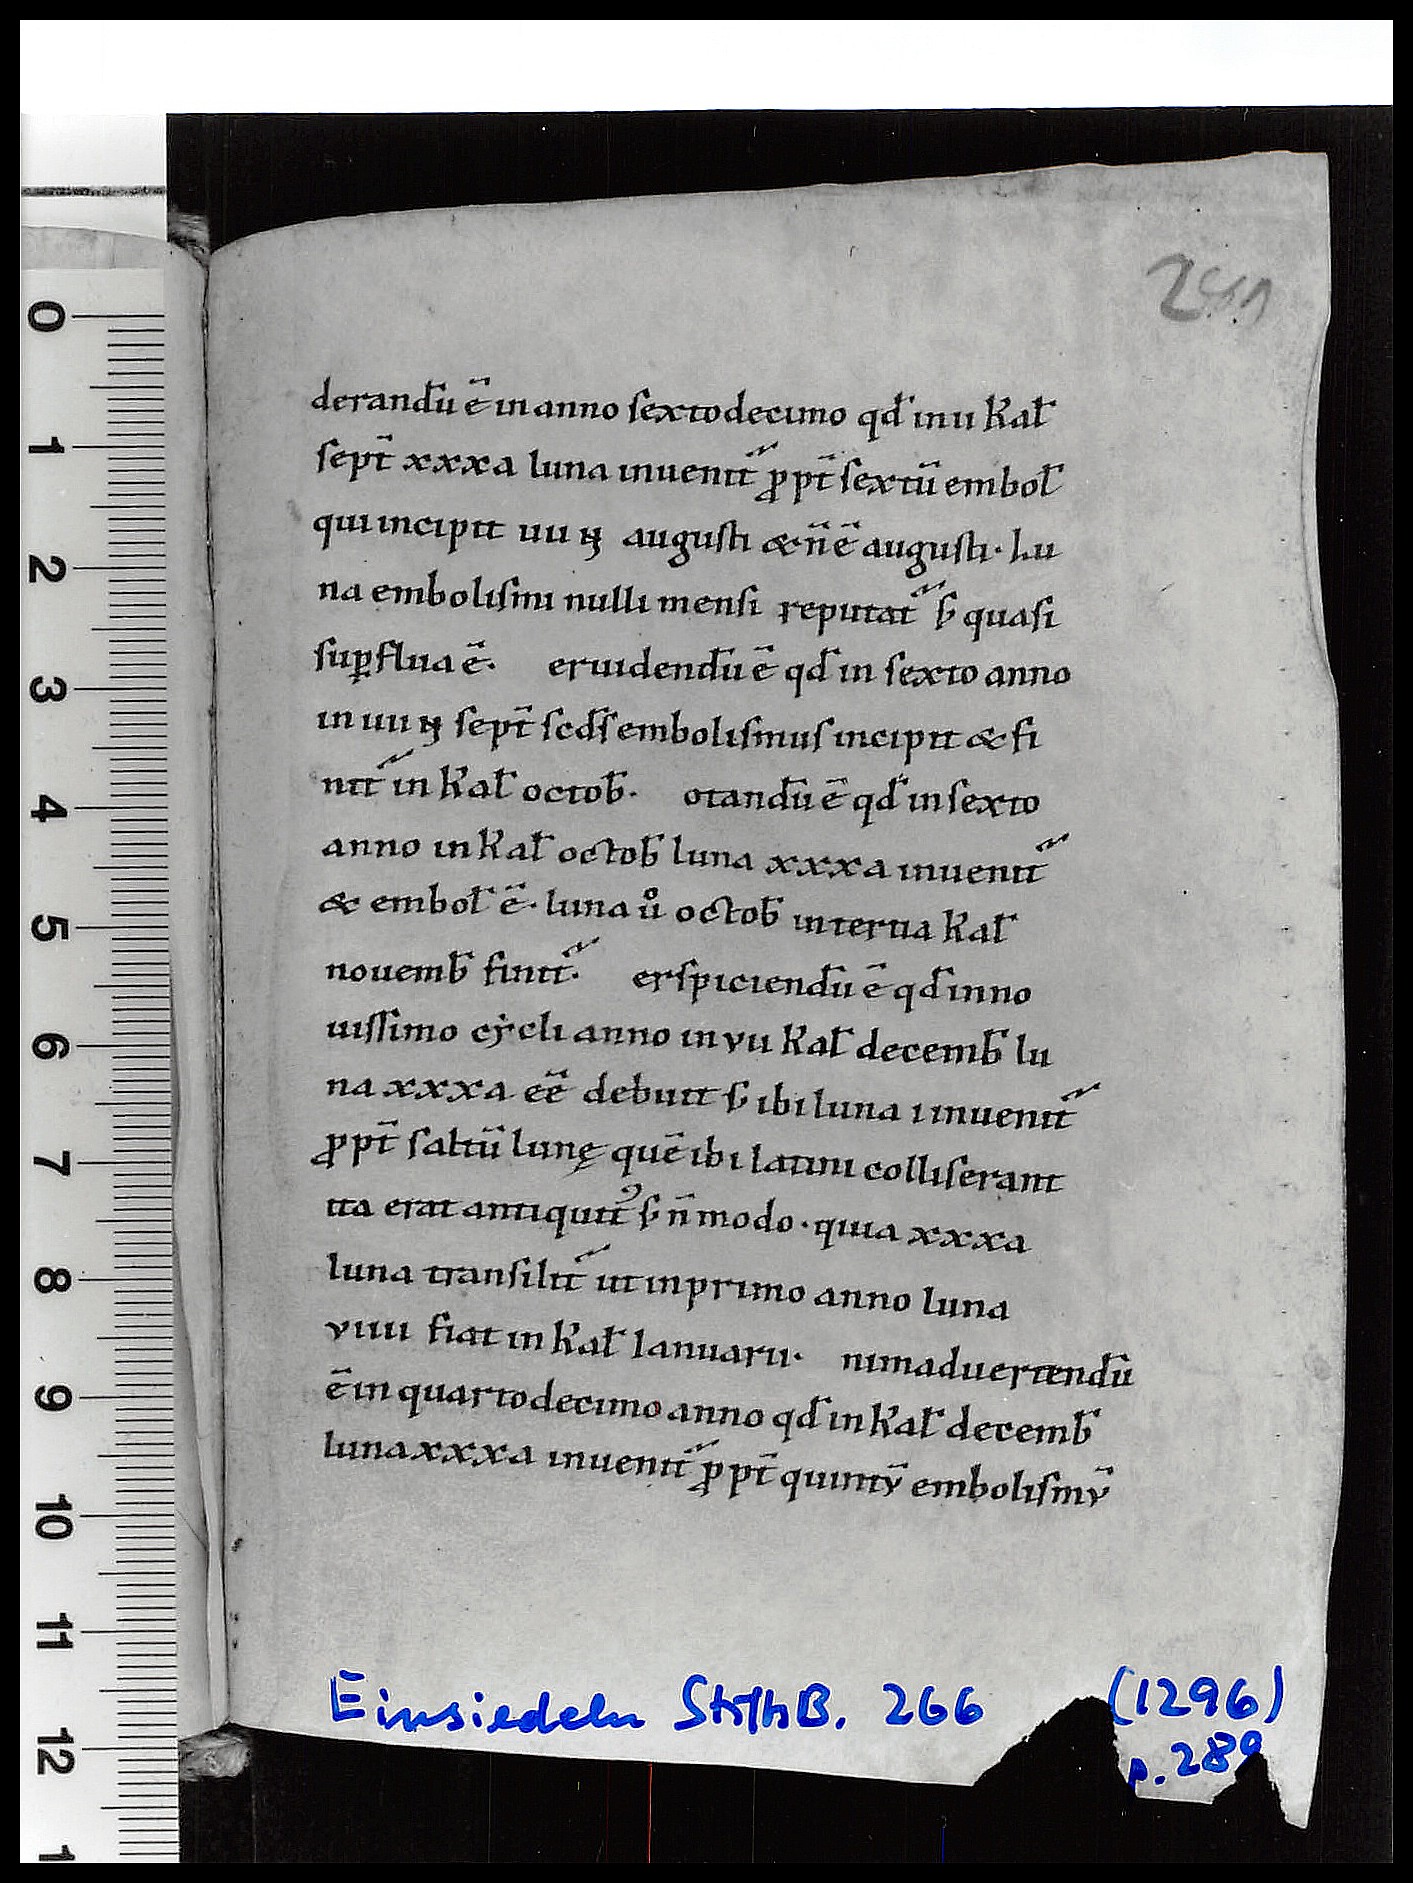 289
derandū ē in anno sextodecimo qđ in u kał
sept̄ xxxa luna inuenit̃ ꝓpt̄ sextū emboł
qui incipit uii ꝶ augusti & n̄ ē augusti· Lu
na embolismi nulli mensi reputat̃ ẜ quasi
suꝑflua ē. eruidendū ē qđ in sexto anno
in uii ꝶ sept̄ scđs embolismus incipit & fi
nit̃ in kał octob̄· otandū ē qđ in sexto
anno in kał octob̄ luna xxxa inuenit̃
& emboł ē· luna ů octob̄ in tertia kał
nouemb̄ finit̃· erspiciendū ē qđ in no
uissimo cẏcli anno in vii kał decemb̄ lu
na xxxa eē debuit ẜ ibi luna i inuenit̃
ꝓpt̄ saltū lunę quē ibi latini colliserant
ita erat antiquit᾽ ẜ n̄ modo· quia xxxa
luna transilit̃ ut in primo anno luna
viiii fiat in kał Ianuarii· nimaduertendū
ē in quartodecimo anno qđ in kał decemb̄
luna xxxa inuenit̃ ꝓpt̄ quintv̄ embolismv̄
Einsiedeln StiftsB. 266 (1296)
p. 289
0
1
2
3
4
5
6
7
8
9
10
11
12
1